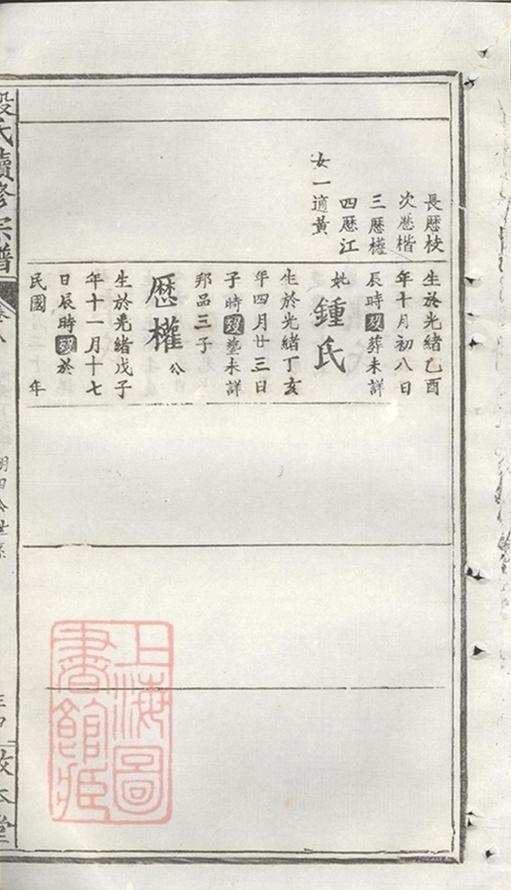 長歷校
次歷楷
三歷權
四歷江
女一適黃
生於光緒乙酉
年十月初八日
辰時歿葬未詳
妣鍾氏
生於光緒丁亥
年四月廿三日
子時歿塟未詳
邦品三子
歷權公
生於光緒戊子
年十一月十七
日辰時歿於
民國 年
段氏續修宗譜
上海圖
書館藏